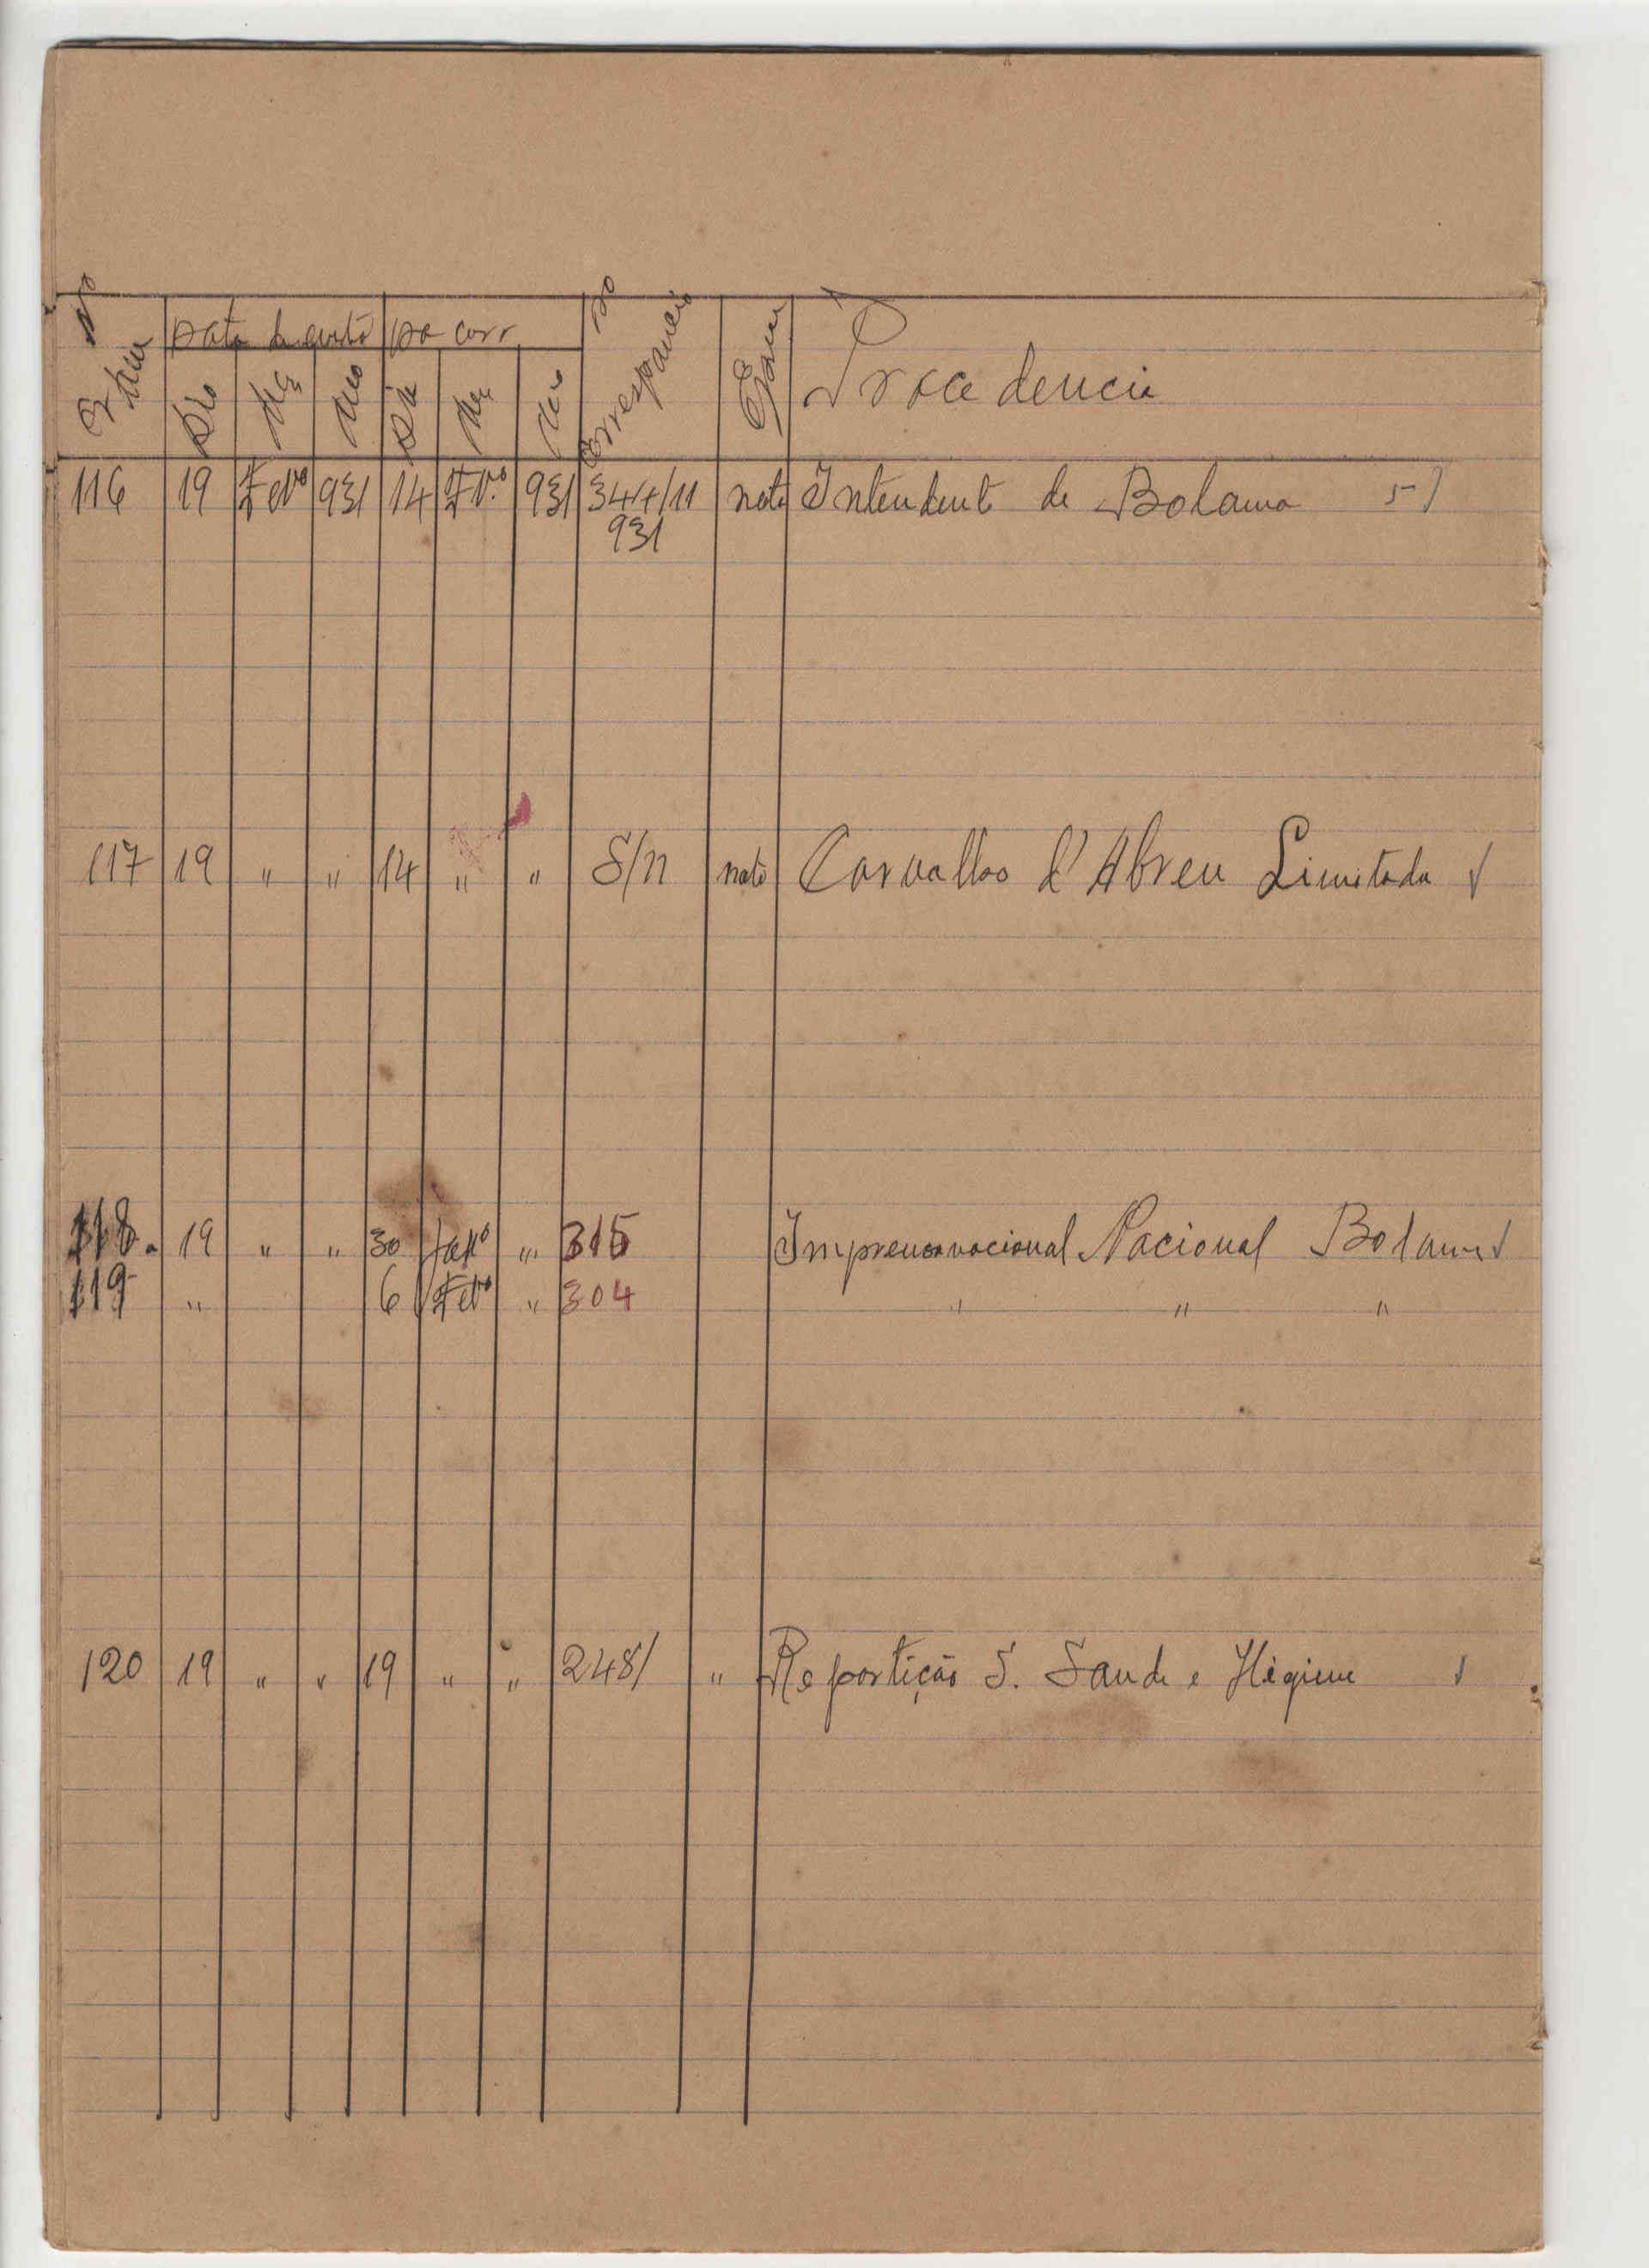 Nº Ordem Data da entrada Da corr Nº Correspondencia Procedencia
Dia Mês Ano Dia Mês Ano
116 19 Fevº 931 14 Fvº 931 344/11 nota Intendent de Bolama
931
117 19 " " 14 " " S/n nota Carvalho d'Abreu Limitada
118. 19 " " 30 Janº " 315 Imprensa nacional Nacional Bolama
119 " 6 Fevº " 304 " " "
120 19 " " 19 " " 248/ " Repartição S. Saude e Higiene